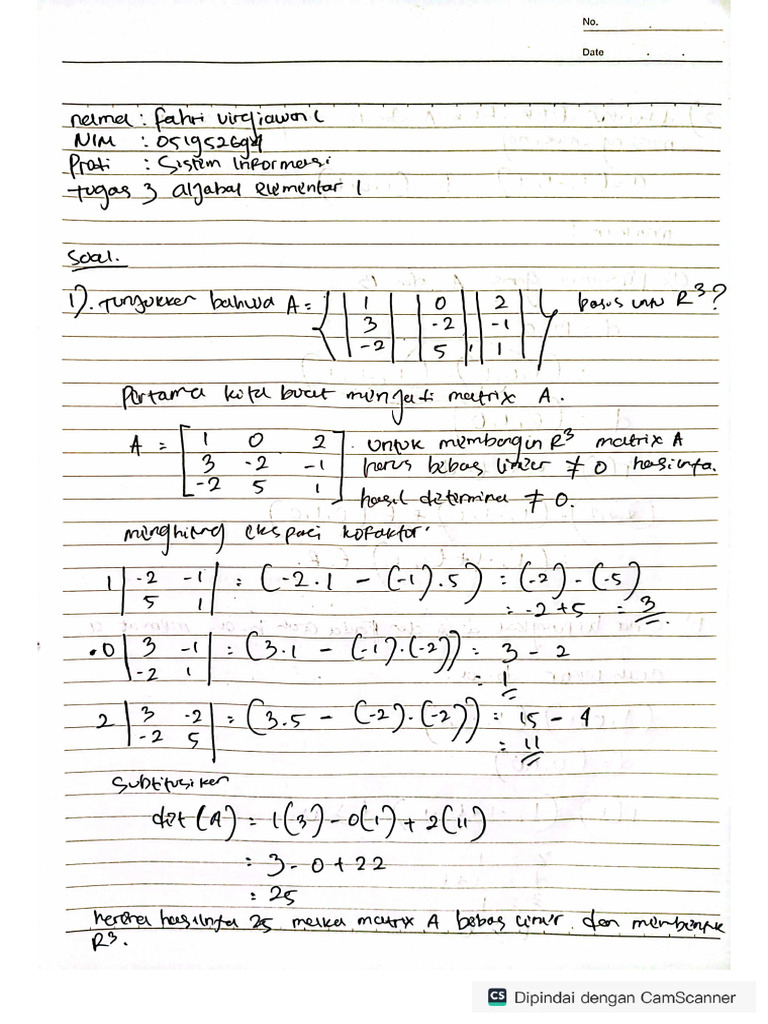 No.
Date
nama : fahri virgiawan C
NIM : 051952694
Prodi : Sistem Informasi
Tugas 3 aljabal elementar 1
Soal.
1). Tunjukkan bahwa A = { | 1 | | 0 | | 2 | } basis untu R³?
| 3 | | -2 | | -1 |
| -2 | | 5 | , | 1 |
Pertama kita buat menjadi matrix A.
A = [ 1 0 2 ] . untuk membangun R³ matrix A
3 -2 -1 harus bebas linier ≠ 0 hasilnya.
-2 5 1 hasil determina ≠ 0.
menghitung ekspasi kofaktor:
1 | -2 -1 | = (-2.1 - (-1).5) = (-2) - (-5)
| 5 1 | = -2+5 = 3
.0 | 3 -1 | = (3.1 - (-1).(-2)) = 3 - 2
| -2 1 | = 1
2 | 3 -2 | = (3.5 - (-2).(-2)) = 15 - 4
| -2 5 | = 11
Subtitusiken
det (A) = 1(3) - 0(1) + 2(11)
= 3 - 0 + 22
= 25
karena hasilnya 25 maka matrix A bebas linier dan membentuk
R³.
CS Dipindai dengan CamScanner